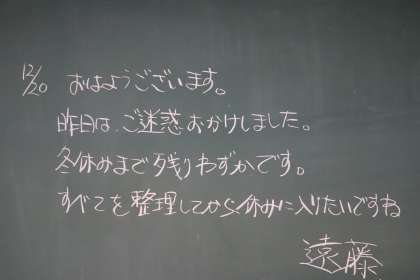 12/20 おはようございます。
昨日は、ご迷惑おかけしました。
冬休みまで残りわずかです。
すべてを整理してから休みに入りたいですね
遠藤